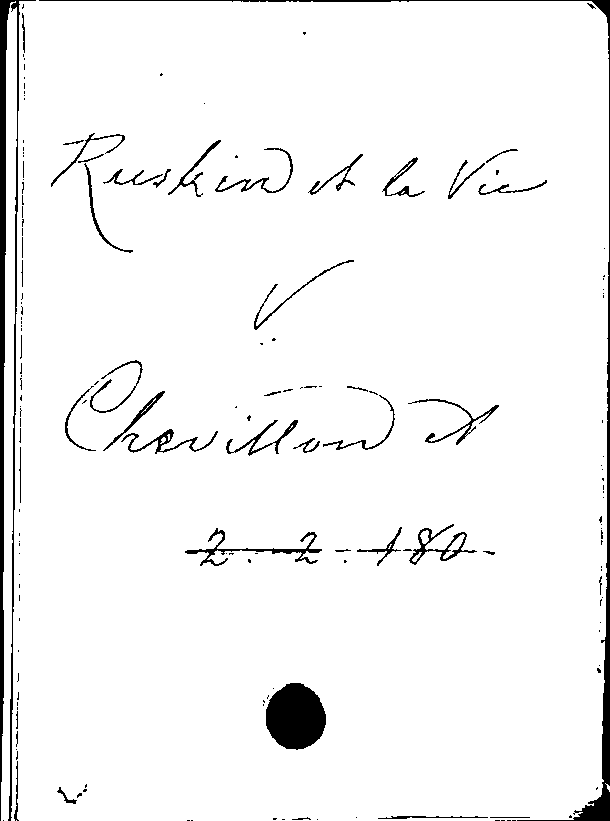 Ruskin et la Vie
V.
Chevillon A
2. 2. 180